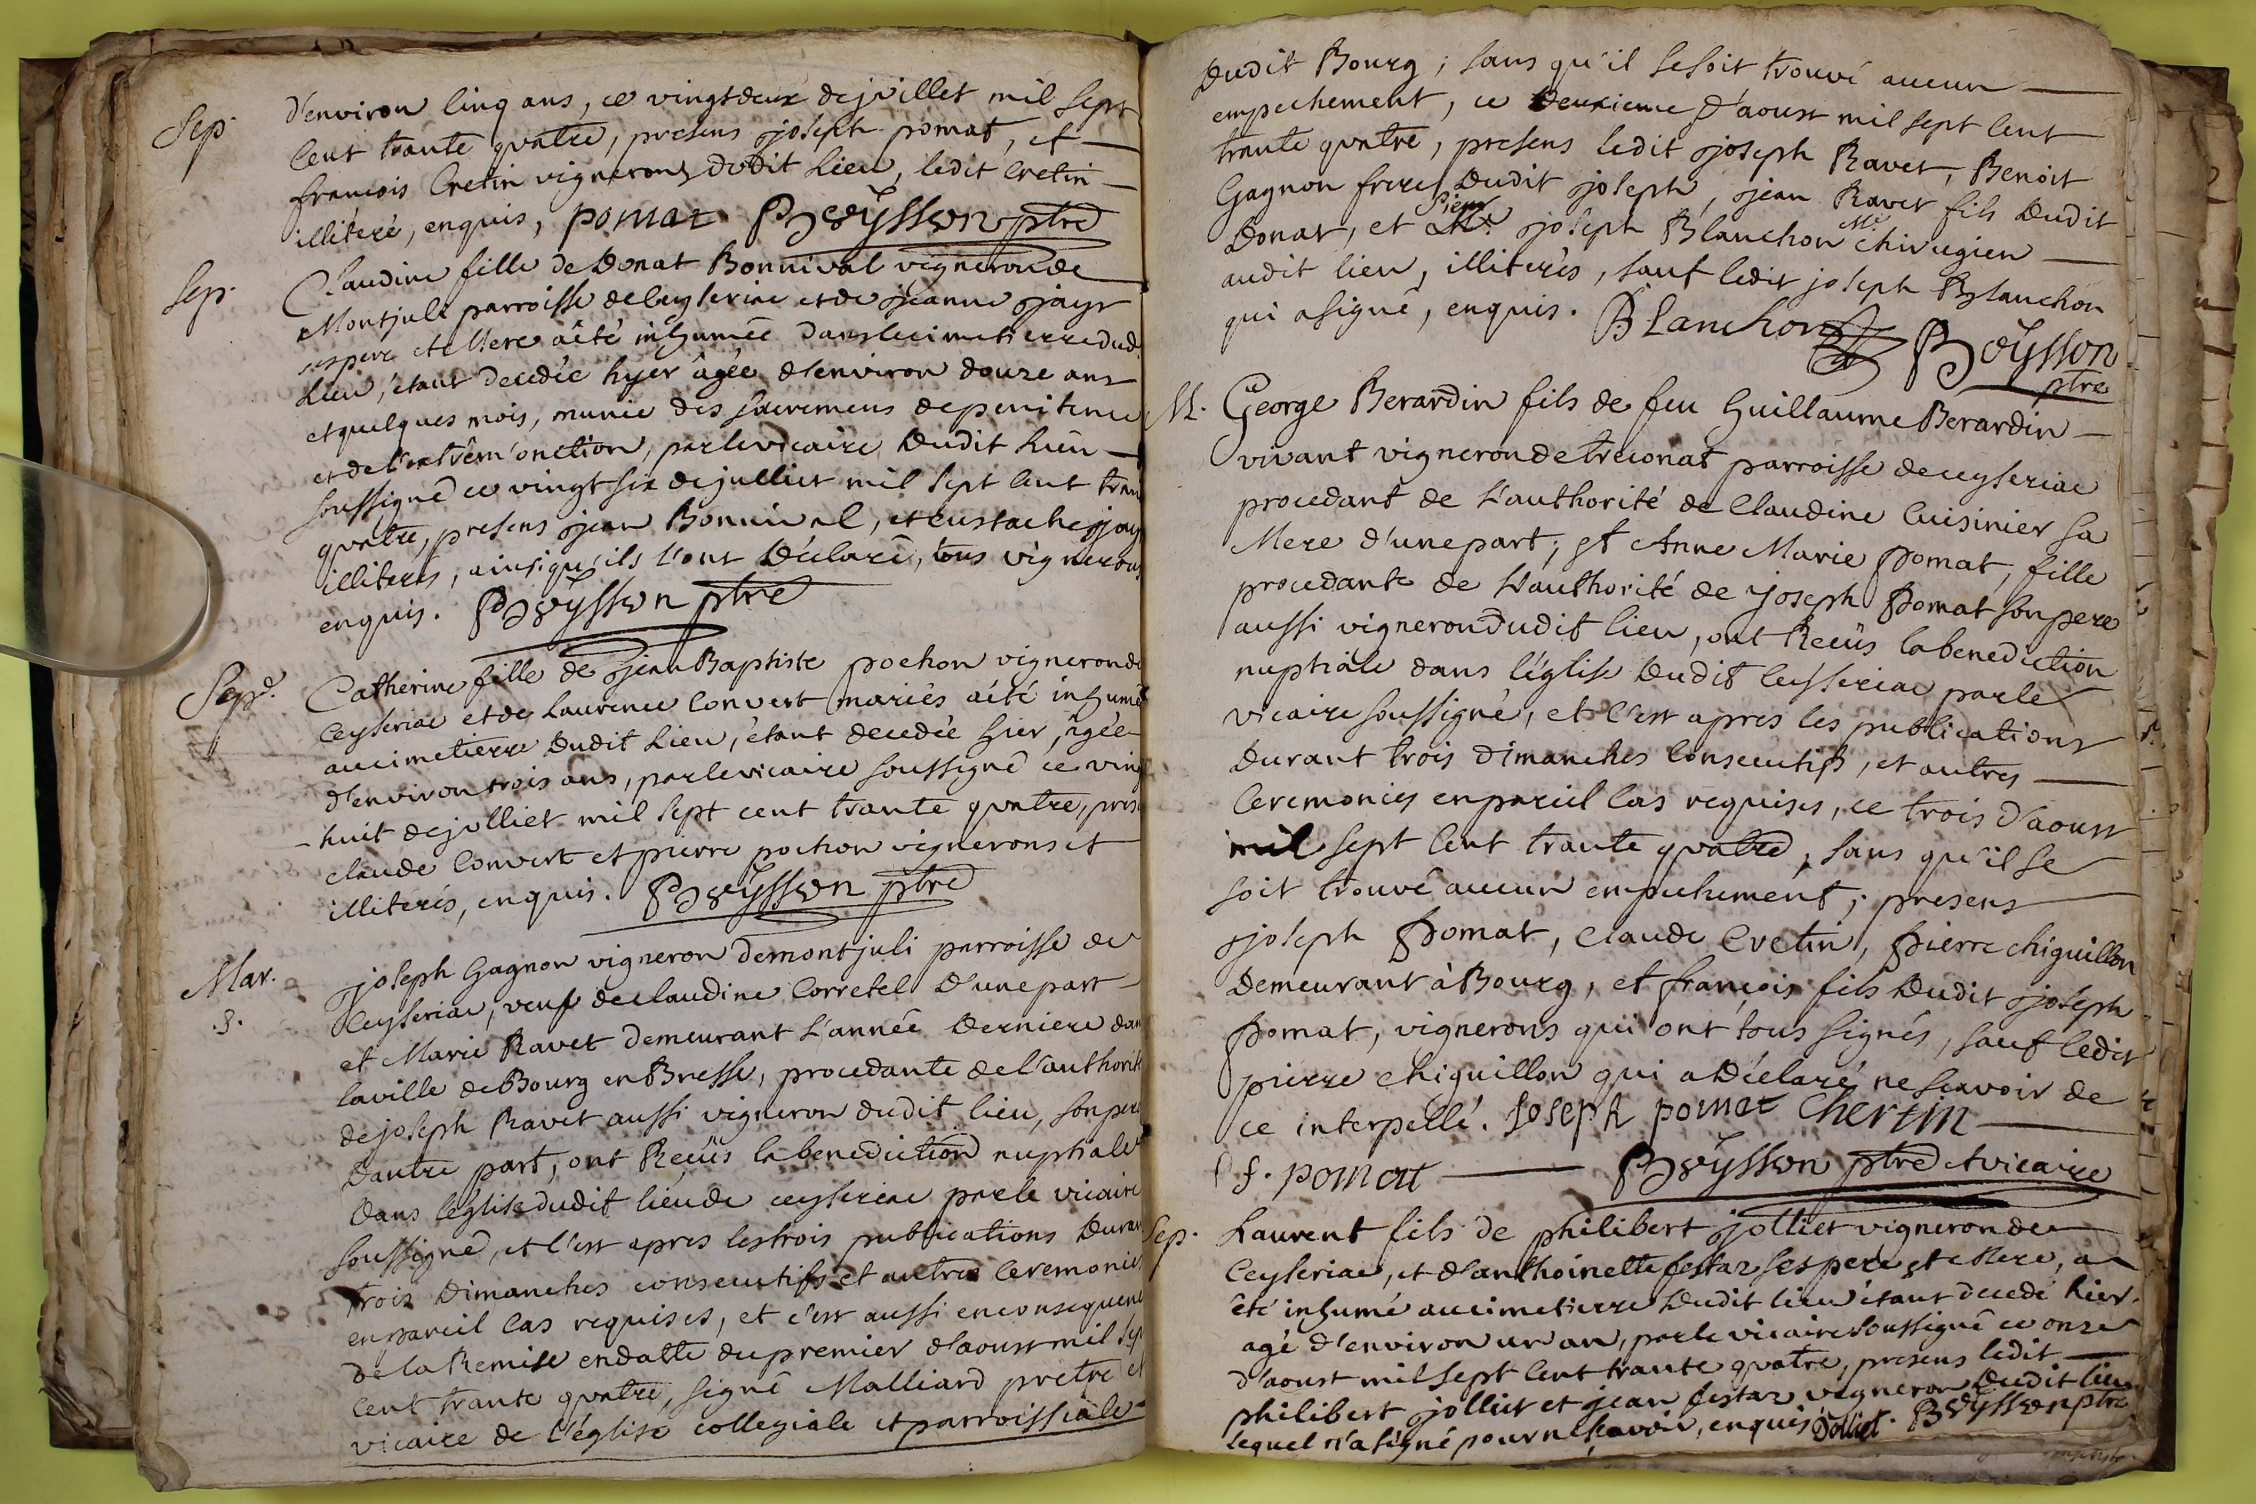 Sep.
d'environ cinq ans, ce vingtdeux de juillet mil sept
cent trante quatre, presens joseph pomat, et
françois Cretin vignerons dudit Lieu, ledit Cretin
illiteré, enquis, pomat Beÿsson ptre
Sep.
Claudine fille de Donat Bonnival vigneron de
Montjuli parroisse de Ceyseriac et de jeanne jayr
ses pere et Mere a êté inhumée dans le cimetierre dud.
Lieu, êtant decedée hyer âgée d'environ douze ans
et quelques mois, munie des sacremens de penitence
et de l'extrêm'onction, par le vicaire dudit Lieu
soussigné ce vingt six de julliet mil sept cent tran
quatre, presens jean Bonnival, et eustache jay
illiterés, ainsi qu'ils l'ont Déclaré, tous vignerons
enquis. Beÿsson ptre
Sepe.
Catherine fille de jean Baptiste pochon vigneron de
Ceyseriac et de Laurence Convert mariés a êté inhumée
au cimetierre dudit Lieu, êtant decedée hier, âgée
d'environ trois ans, par le vicaire soussigné ce ving
-huit de julliet mil sept cent trante quatre, prese
claude Convert et pierre pochon vignerons et
illiterés, enquis. Beÿsson ptre
Mar.
.S.
joseph Gagnon vigneron de montjuli parroisse de
Ceyseriac, veuf de claudine Corretel d'une part
et Marie Ravet demeurant l'année derniere dan
la ville de Bourg en Bresse, procedante de l'authorité
de joseph Ravet aussi vigneron dudit lieu, son pere
d'autre part, ont Reçüs la benediction nuptiale
dans l'église dudit lieu de ceyseriac par le vicaire
soussigné, et c'est apres les trois publications Duran
trois Dimanches consecutifs et autres Ceremonies
en pareil cas requises, et c'est aussi en consequence
de la Remise en datte du premier d'aoust mil sep
cent trante quatre, signé Malliard prêtre et
vicaire de l'église collegiale et parroissiale
Dudit Bourg; sans qu'il se soit trouvé aucun
empechement, ce Deuxieme d'aoust mil sept cent
trante quatre, presens ledit joseph Ravet, Benoit
Gagnon frere Dudit joseph, jean Ravet fils Dudit
Donat, et sieur joseph Blanchon Me chirugien
audit lieu, illiterés, sauf ledit joseph Blanchon
qui a signé, enquis. Blanchon Beÿsson
ptre
M.
George Berardin fils de feu Guillaume Berardin
vivant vigneron de treconat parroisse de ceyseriac
procedant de l'authorité de Claudine Cuisinier sa
Mere d'une part; et Anne Marie Pomat, fille
procedante de l'authorité de joseph Pomat son pere
aussi vigneron dudit lieu, ont Reçüs la benediction
nuptiale dans l'église Dudit Ceyseriac par le
vicaire soussigné, et c'est apres les publications
Durant trois dimanches consecutifs, et autres
Ceremonies en pareil cas requises, ce trois d'aoust
mil sept cent trante quatre, sans qu'il se
soit trouvé aucun empechement; presens
joseph Pomat, Claude Cretin, Pierre chiguillon
Demeurant à Bourg, et françois fils Dudit joseph
Pomat, vignerons qui ont tous signés, sauf ledit
pierre chiguillon qui a Déclaré ne scavoir de
ce interpellé. Joseph pomat Chertin
f. pomat Beÿsson ptre et vicaire
Sep.
Laurent fils de philibert jolliet vigneron de
Ceyseriac, et d'anthoinette festaz ses pere et Mere, a
êté inhumé au cimetierre dudit lieu êtant decedé hier
agé d'environ un an, par le vicaire soussigné ce onze
d'aoust mil sept cent trante quatre, presens ledit
philibert jolliet et jean festaz vigneron Dudit lieu
lequel n'a signé pour ne scavoir, enquis Jolliet. Beÿsson ptre